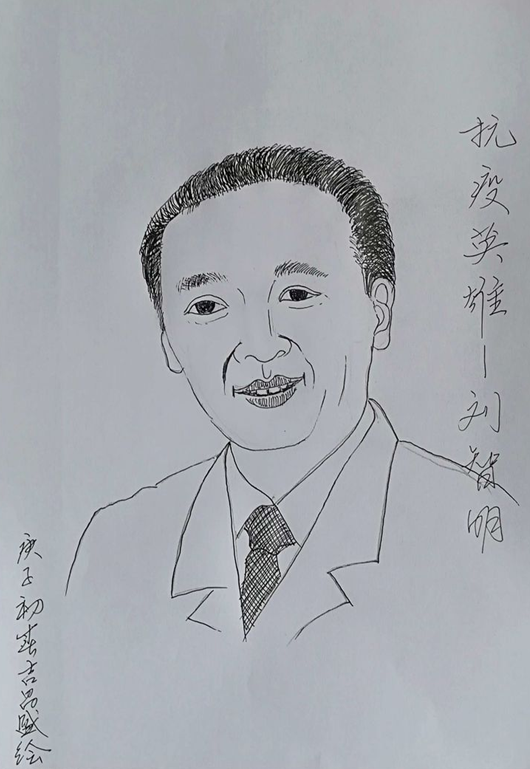 抗疫英雄—刘智明
庚子初春吉昌盛绘